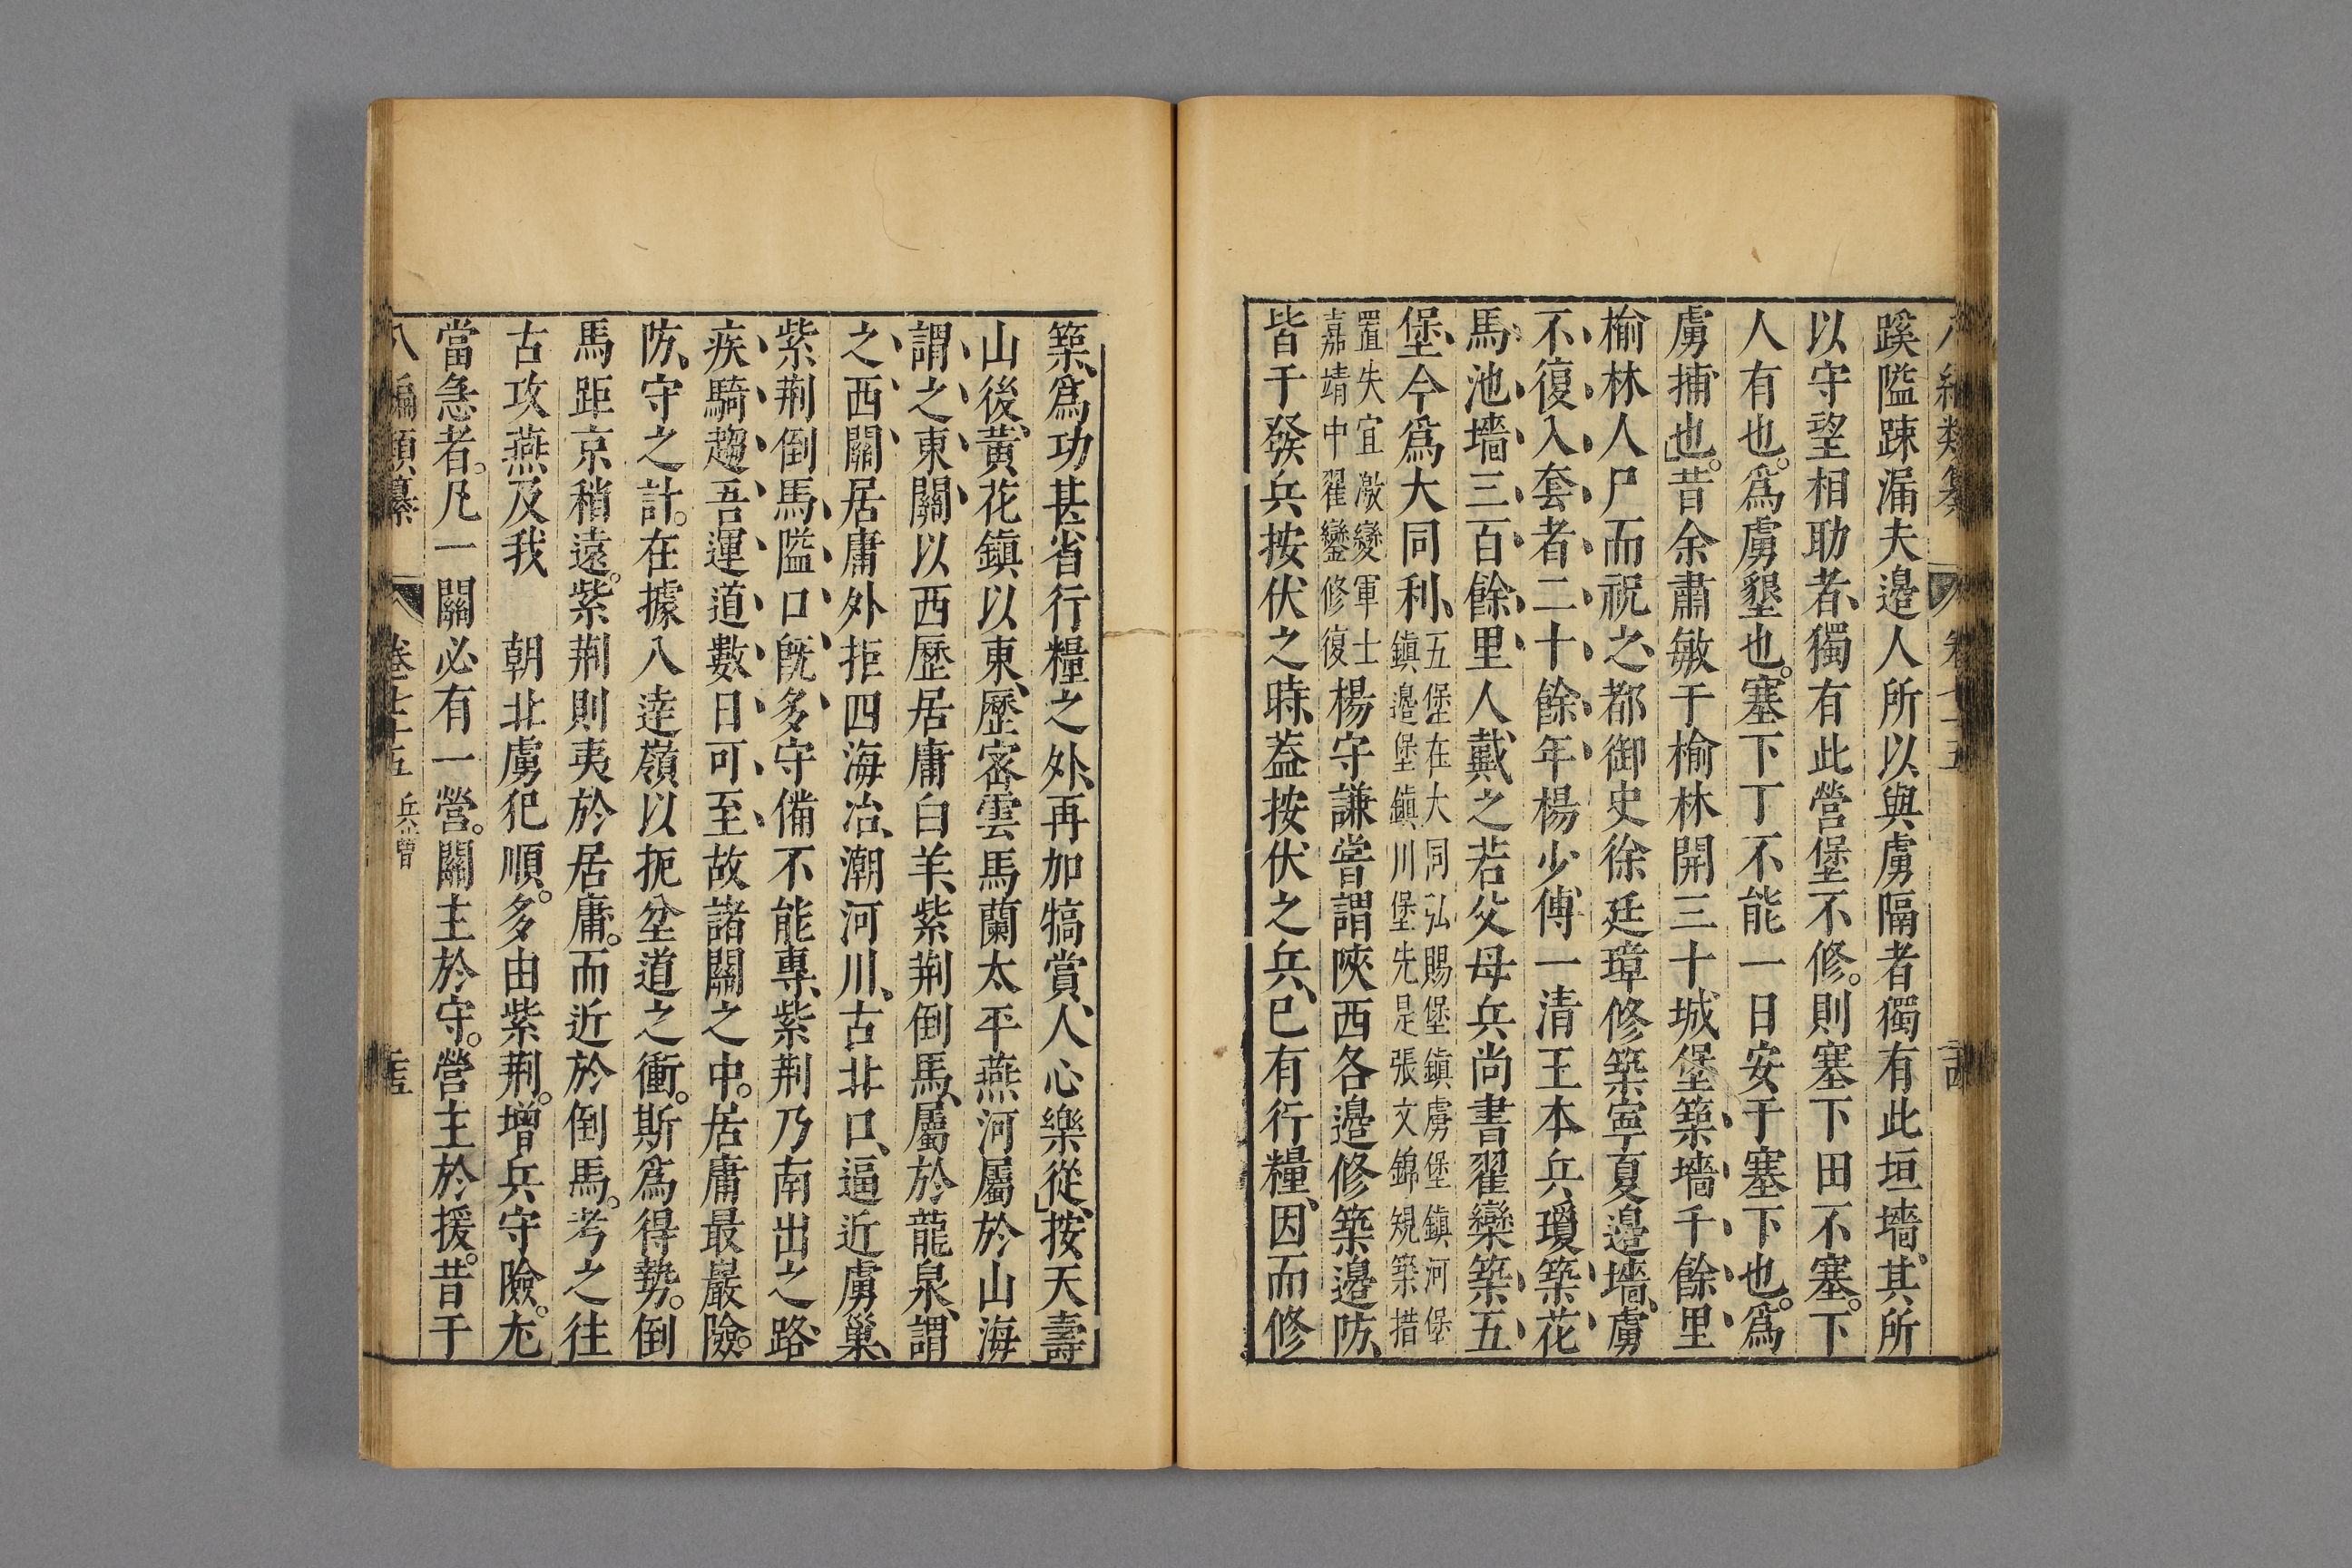 蹊隘踈漏夫邉人所以與虜隔者獨有此垣墻其所
以守望相助者獨有此營堡不修則塞下田不塞下
人有也爲虜墾也塞下丁不能一日安于塞下也爲
虜捕也昔余肅敏于榆林開三十城堡築墻千餘里
榆林人尸而祝之都御史徐廷璋修築寧夏邉墻虜
不復入套者二十餘年楊少傅一清王本兵瓊築花
馬池墻三百餘里人戴之若父母兵尚書翟欒築五
堡今爲大同利五堡在大同弘賜堡鎮虜堡鎮河堡
鎮邉堡鎮川堡先是張文錦規築措
置失宜激變軍士
嘉靖中翟鑾修復楊守謙嘗謂陝西各邉修築邉防
皆于發兵按伏之時葢按伏之兵已有行糧因而修
築爲功甚省行糧之外再加犒賞人心樂從按天壽
山後黃花鎮以東歷密雲馬蘭太平燕河屬於山海
謂之東關以西歷居庸白羊紫荆倒馬屬於龍泉謂
之西關居庸外拒四海冶潮河川古北口逼近虜巢
紫荆倒馬隘口旣多守備不能專紫荆乃南出之路
疾騎趨吾運道數日可至故諸關之中居庸最嚴險
防守之計在據八逹嶺以扼坌道之衝斯爲得勢倒
馬距京稍遠紫荆則夷於居庸而近於倒馬考之往
古攻燕及我　朝北虜犯順多由紫荆增兵守險尤
當急者凡一關必有一營關主於守營主於援昔于
八編類纂　卷七十五　兵曹